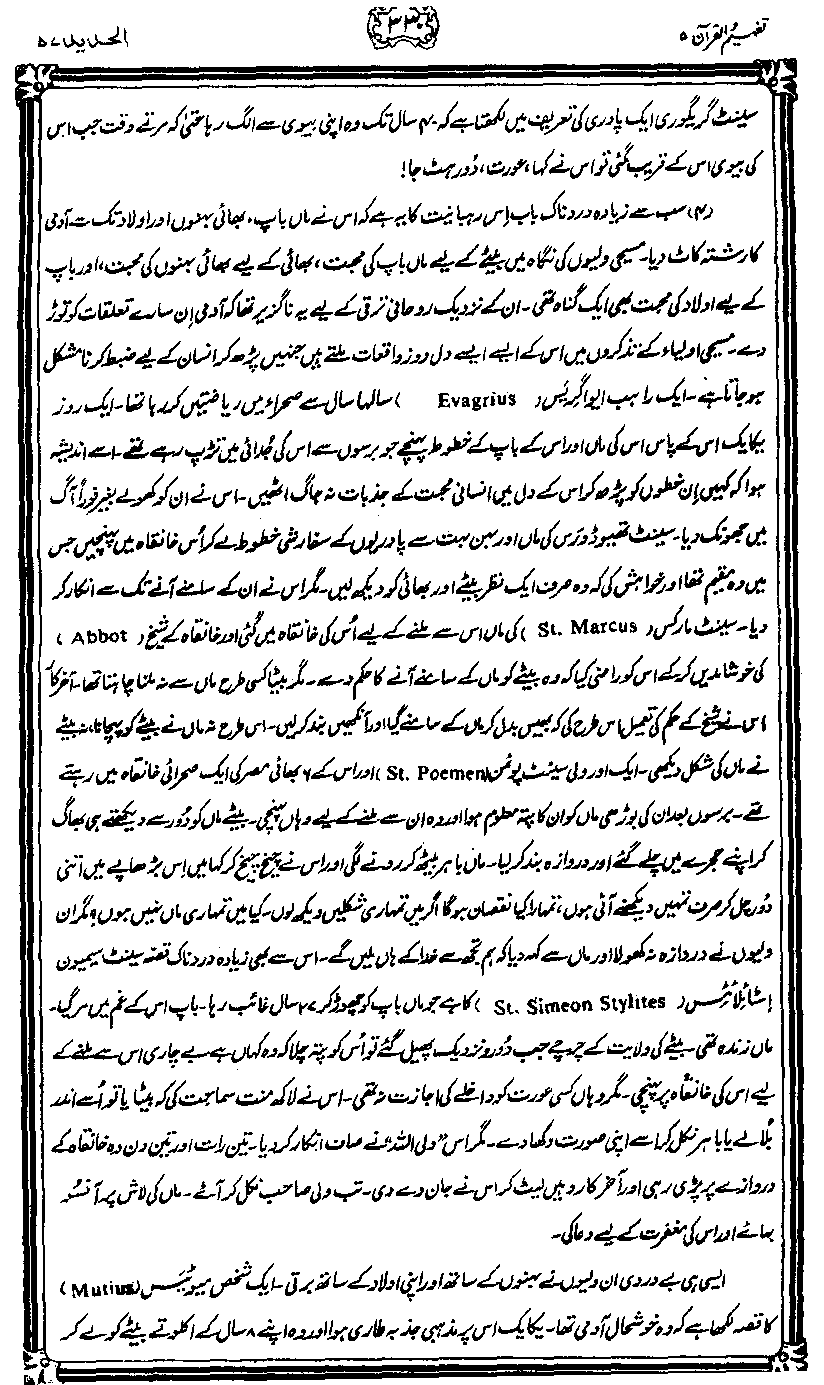 تفہیم القرآن ۵
۳۳۰
الحدید ۵۷
سینٹ گریگوری ایک پادری کی تعریف میں لکھتا ہے کہ ۴۰ سال تک وہ اپنی بیوی سے الگ رہا حتیٰ کہ مرتے وقت جب اس
کی بیوی اس کے قریب گئی تو اس نے کہا، عورت، دُور ہٹ جا!
(۴) سب سے زیادہ دردناک باب اِس رہبانیت کا یہ ہے کہ اس نے ماں باپ، بھائی بہنوں اور اولاد تک سے آدمی
کا رشتہ کاٹ دیا۔ مسیحی ولیوں کی نگاہ میں بیٹے کے لیے ماں باپ کی محبت، بھائی کے لیے بھائی بہنوں کی محبت، اور باپ
کے لیے اولاد کی محبت بھی ایک گناہ تھی۔ ان کے نزدیک روحانی ترقی کے لیے یہ ناگزیر تھا کہ آدمی اِن سارے تعلقات کو توڑ
دے۔ مسیحی اولیاء کے تذکروں میں اس کے ایسے ایسے دل دوز واقعات ملتے ہیں جنہیں پڑھ کر انسان کے لیے ضبط کرنا مشکل
ہو جاتا ہے۔ ایک راہب ایواگریس (Evagrius) سالہا سال سے صحراء میں ریاضتیں کر رہا تھا۔ ایک روز
یکایک اس کے پاس اس کی ماں اور اس کے باپ کے خطوط پہنچے جو برسوں سے اس کی جُدائی میں تڑپ رہے تھے۔ اسے اندیشہ
ہوا کہ کہیں اِن خطوں کو پڑھ کر اس کے دل میں انسانی محبت کے جذبات نہ جاگ اٹھیں۔ اس نے ان کو کھولے بغیر فوراً آگ
میں جھونک دیا۔ سینٹ تھیوڈورَس کی ماں اور بہن بہت سے پادریوں کے سفارشی خطوط لے کر اُس خانقاہ میں پہنچیں جس
میں وہ مقیم تھا اور خواہش کی کہ وہ صرف ایک نظر بیٹے اور بھائی کو دیکھ لیں۔ مگر اس نے ان کے سامنے آنے تک سے انکار کر
دیا۔ سینٹ مارکس (St. Marcus) کی ماں اس سے ملنے کے لیے اُس کی خانقاہ میں گئی اور خانقاہ کے شیخ (Abbot)
کی خوشامدیں کر کے اس کو راضی کیا کہ وہ بیٹے کو ماں کے سامنے آنے کا حکم دے۔ مگر بیٹا کسی طرح ماں سے نہ ملنا چاہتا تھا۔ آخر کار
اس نے شیخ کے حکم کی تعمیل اس طرح کی کہ بھیس بدل کر ماں کے سامنے گیا اور آنکھیں بند کر لیں۔ اس طرح نہ ماں نے بیٹے کو پہچانا، نہ بیٹے
نے ماں کی شکل دیکھی۔ ایک اور ولی سینٹ پوئمن (St. Poemen) اور اس کے ۶ بھائی مصر کی ایک صحرائی خانقاہ میں رہتے
تھے۔ برسوں بعد ان کی بوڑھی ماں کو ان کا پتہ معلوم ہوا اور وہ ان سے ملنے کے لیے وہاں پہنچی۔ بیٹے ماں کو دُور سے دیکھتے ہی بھاگ
کر اپنے حجرے میں چلے گئے اور دروازہ بند کر لیا۔ ماں باہر بیٹھ کر رونے لگی اور اس نے چیخ چیخ کر کہا میں اِس بڑھاپے میں اتنی
دُور چل کر صرف تمہیں دیکھنے آئی ہوں، تمہارا کیا نقصان ہوگا اگر میں تمہاری شکلیں دیکھ لوں۔ کیا میں تمہاری ماں نہیں ہوں؟ مگر ان
ولیوں نے دروازہ نہ کھولا اور ماں سے کہہ دیا کہ ہم تجھ سے خدا کے ہاں ملیں گے۔ اس سے بھی زیادہ دردناک قصہ سینٹ سیمیون
اِسٹائلائٹس (St. Simeon Stylites) کا ہے جو ماں باپ کو چھوڑ کر ۲۷ سال غائب رہا۔ باپ اس کے غم میں مر گیا۔
ماں زندہ تھی۔ بیٹے کی ولایت کے چرچے جب دُور و نزدیک پھیل گئے تو اُس کو پتہ چلا کہ وہ کہاں ہے۔ بے چاری اس سے ملنے کے
لیے اس کی خانقاہ پر پہنچی۔ مگر وہاں کسی عورت کو داخلے کی اجازت نہ تھی۔ اس نے لاکھ منت سماجت کی کہ بیٹا یا تو اُسے اندر
بُلا لے یا باہر نکل کر اسے اپنی صورت دکھا دے۔ مگر اس ”ولی اللہ“ نے صاف انکار کر دیا۔ تین رات اور تین دن وہ خانقاہ کے
دروازے پر پڑی رہی اور آخر کار وہیں لیٹ کر اس نے جان دے دی۔ تب ولی صاحب نکل کر آئے۔ ماں کی لاش پر آنسو
بہائے اور اس کی مغفرت کے لیے دعا کی۔
ایسی ہی بے دردی ان ولیوں نے بہنوں کے ساتھ اور اپنی اولاد کے ساتھ برتی۔ ایک شخص میوٹیَس (Mutius)
کا قصہ لکھا ہے کہ وہ خوشحال آدمی تھا۔ یکایک اس پر مذہبی جذبہ طاری ہوا اور وہ اپنے ۸ سال کے اکلوتے بیٹے کو لے کر